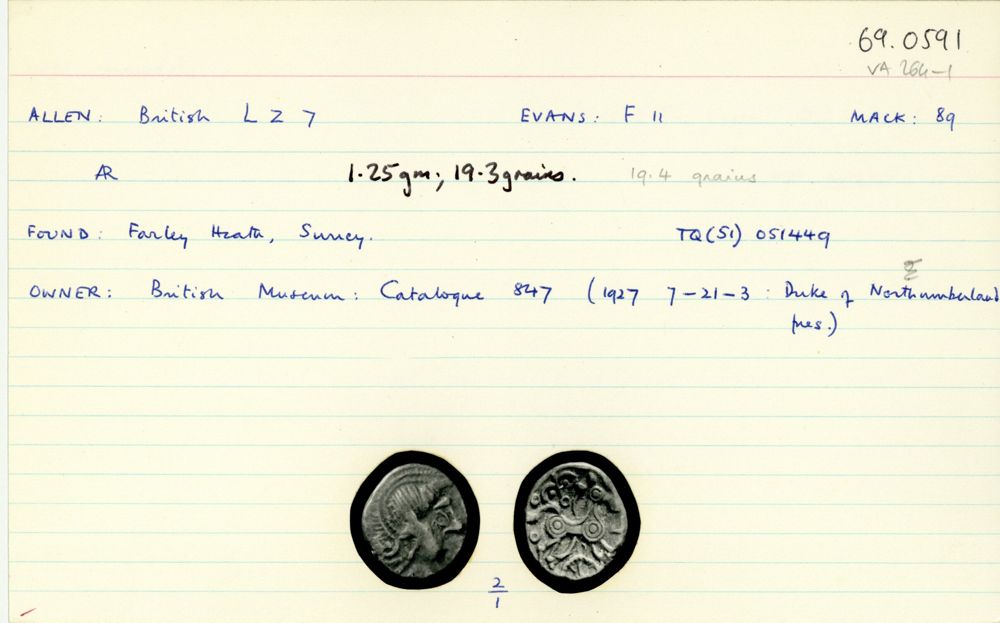 69.0591
VA 264-1
ALLEN: British L Z 7 EVANS: F 11 MACK: 89
AR 1.25gm; 19.3grains. 19.4 grains
FOUND: Farley Heath, Surrey. TQ(51) 051449
OWNER: British Museum: Catalogue 847 (1927 7-21-3: Duke of Northumberland
pres.)
2
1